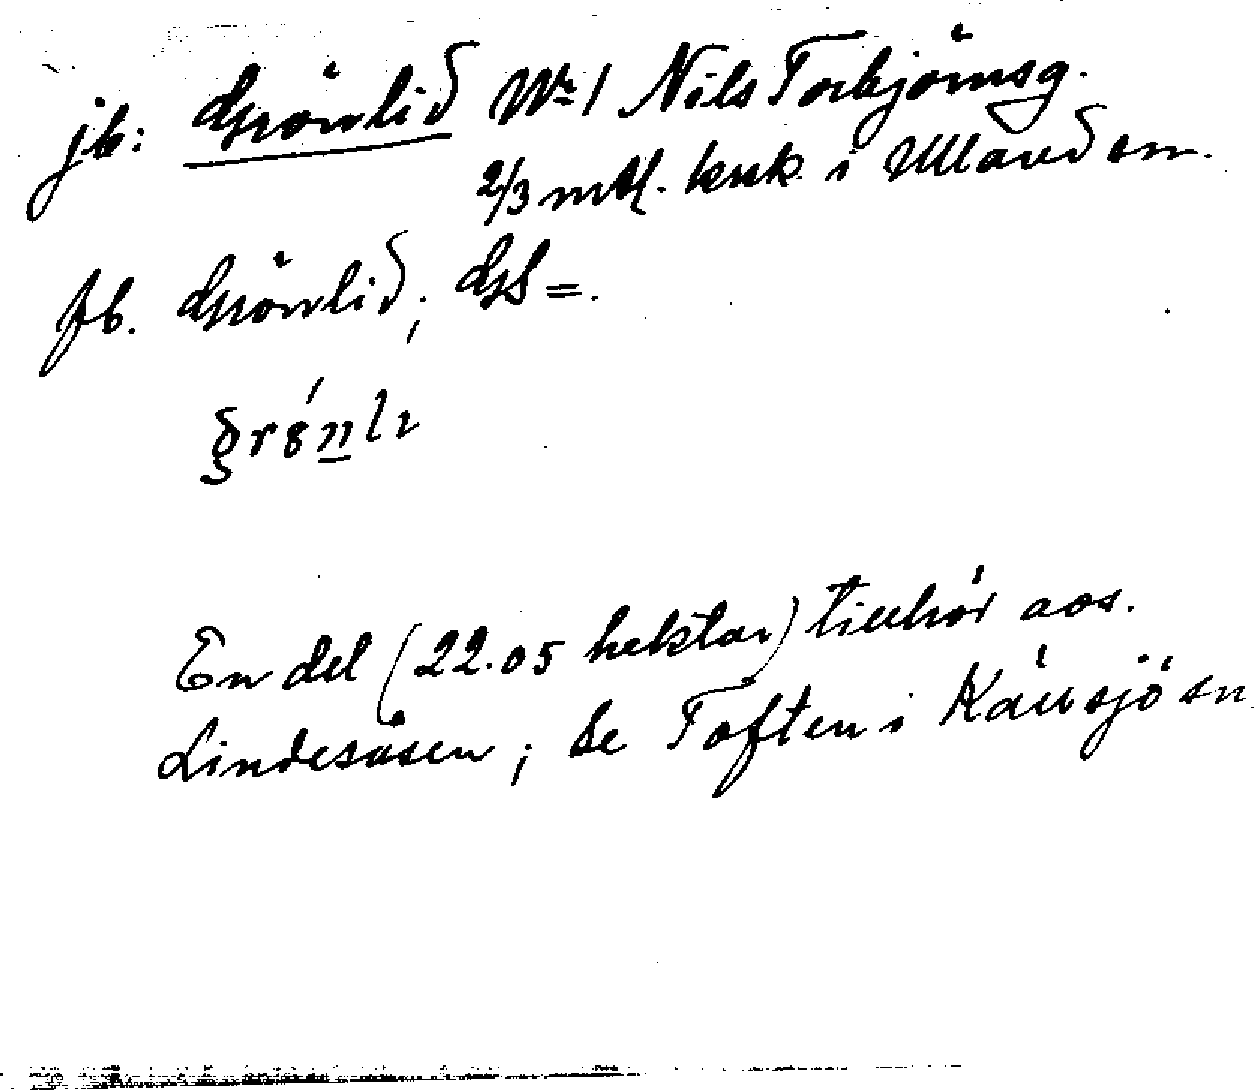 jb: Grönlid Nr 1 Nils Torbjörnsg.
2/3 mtl. krsk. i Ullared sn.
fb. Grönlid; GS =.
En del (22.05 hektar) tillhör aos.
Lindesåsen; Se Toften i Källsjö sn